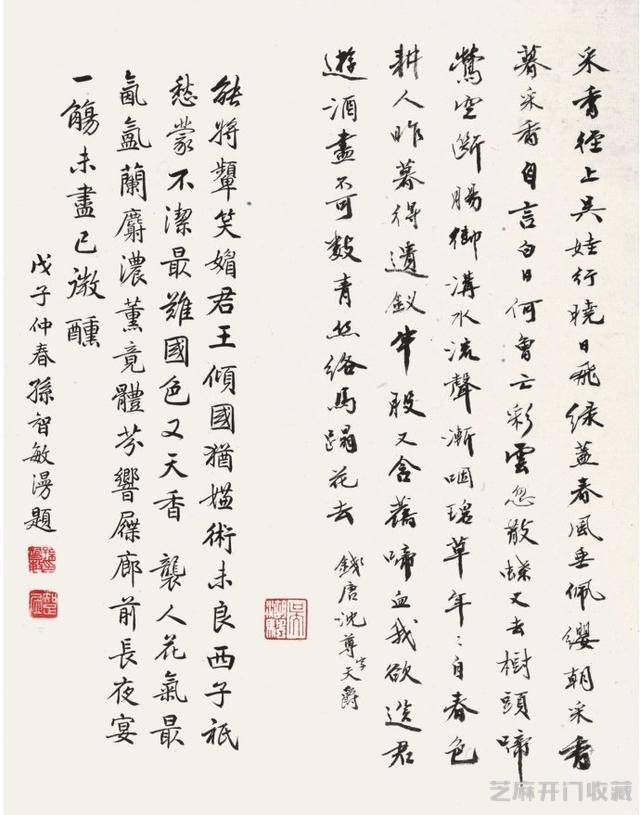 采香徑上吳娃行曉日飛緑蓋春風垂佩纓朝采香
暮采香自言白日何曾亡彩雲忽散蝶又去樹頭啼
鶯空斷腸御溝水流聲漸咽草年〻自春色
耕人昨暮得遺釵半股又含舊啼血我欲君
遊酒盡不可數青絲絡馬蹋花去
錢唐沈尊字天爵
能將顰笑媚君王傾國猶嫌術未良西子祇
愁蒙不潔最難國色又天香 襲人花氣最
氤氳蘭麝濃薰竟體芬響屧廊前長夜宴
一觴未盡已微醺
戊子仲春孫智敏漫題
芝麻开门收藏